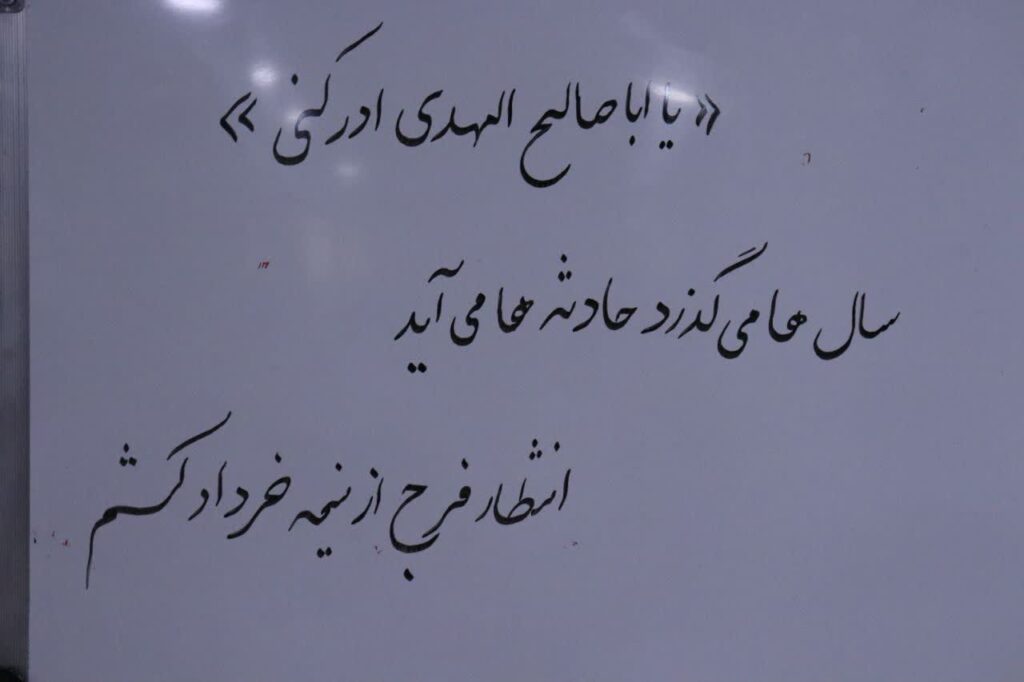 «یا اباصالح المهدی ادرکنی»
سال ها می گذرد حادثه ها می آید
انتظار فرج از نیمه خرداد کشم